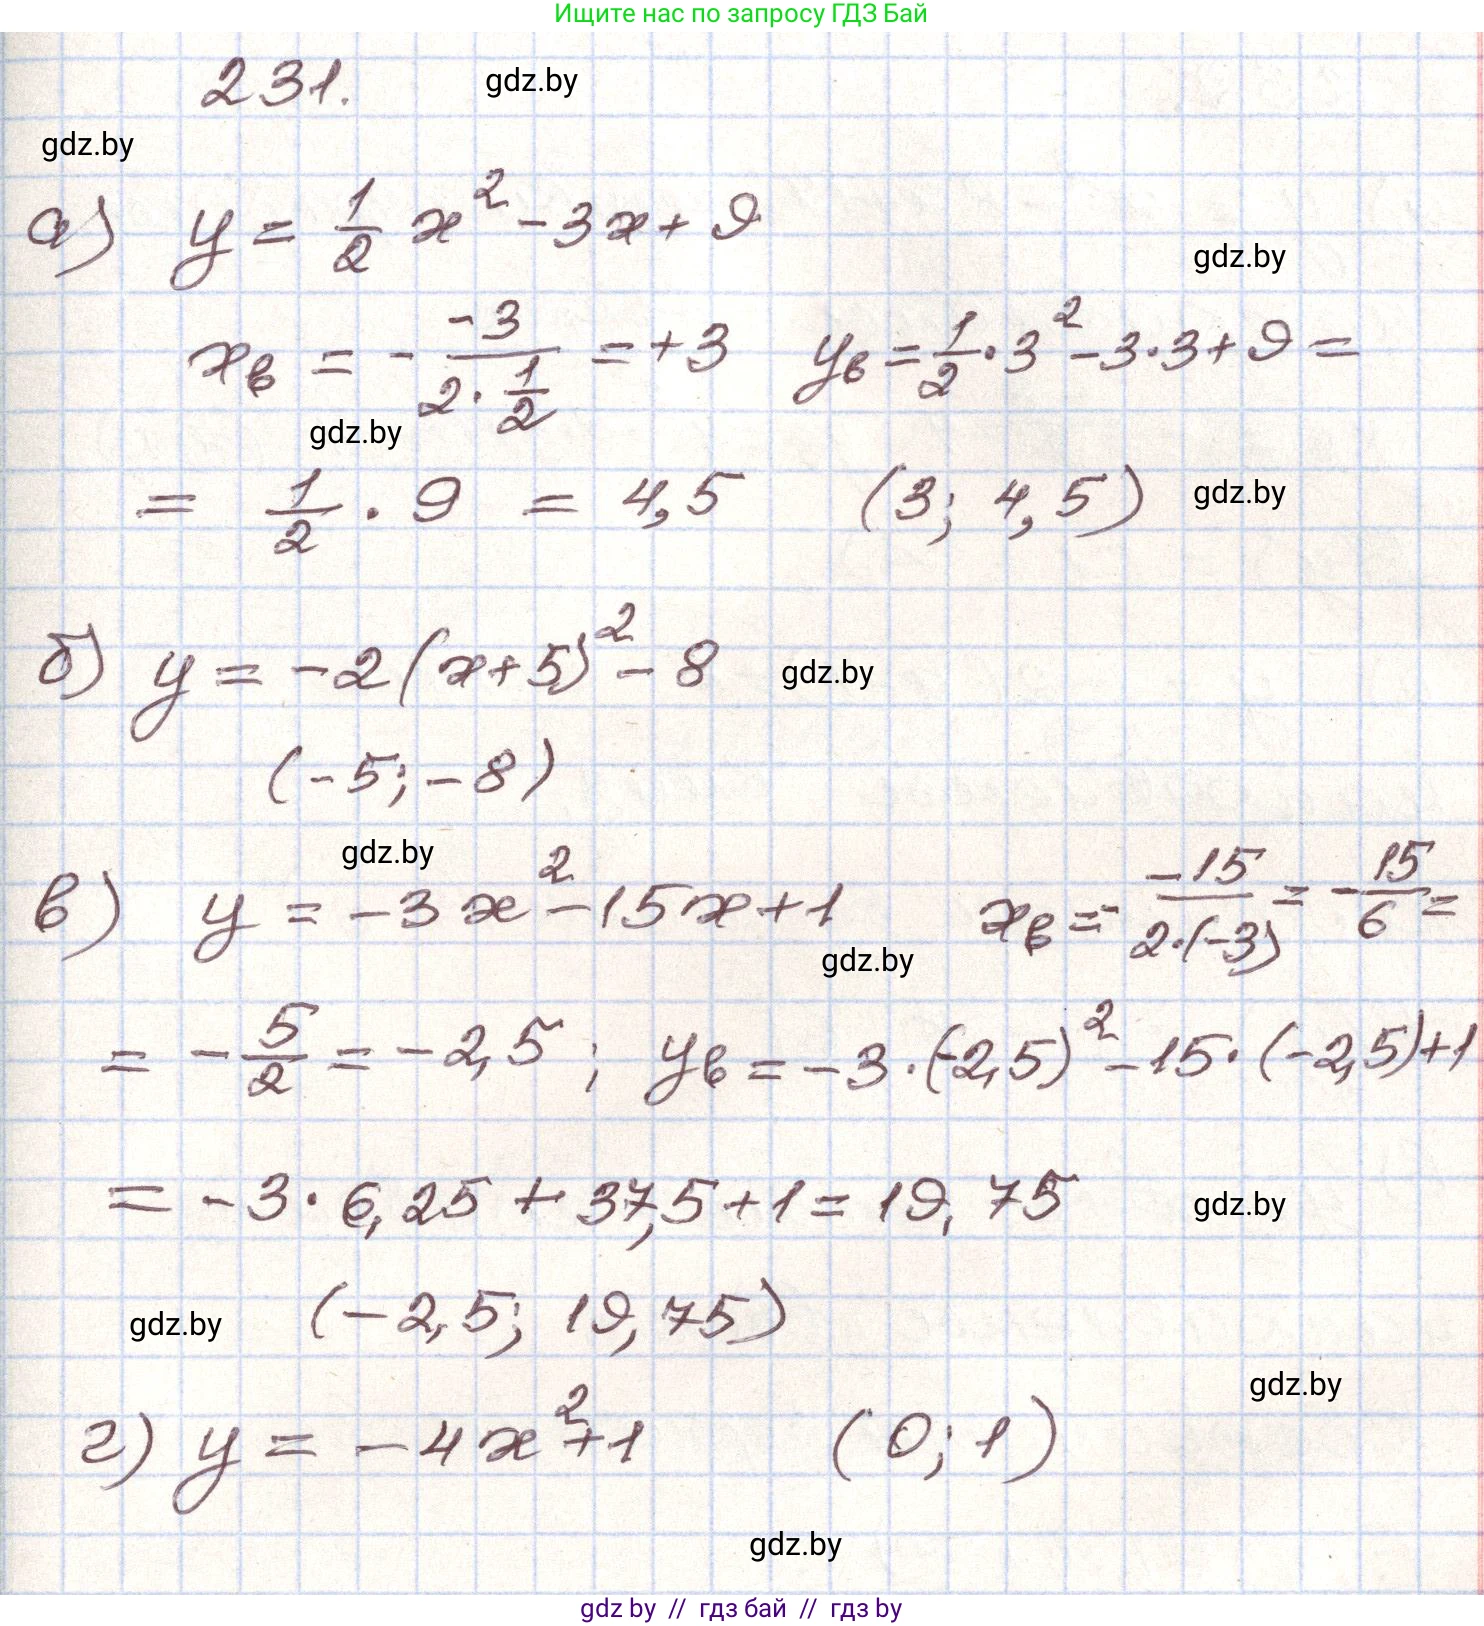 Ищите нас по запросу ГДЗ Бай
231.
gdz.by
gdz.by
а) y = 1/2 x² - 3x + 9
gdz.by
xв = - -3/(2 · 1/2) = +3 yв = 1/2 · 3² - 3 · 3 + 9 =
gdz.by
= 1/2 · 9 = 4,5 (3; 4,5)
gdz.by
б) y = -2(x+5)² - 8
gdz.by
(-5; -8)
gdz.by
в) y = -3x² - 15x + 1 xв = - -15/(2·(-3)) = - 15/6 =
gdz.by
= - 5/2 = -2,5 ; yв = -3 · (-2,5)² - 15 · (-2,5) + 1
= -3 · 6,25 + 37,5 + 1 = 19,75
gdz.by
gdz.by
(-2,5; 19,75)
gdz.by
г) y = -4x² + 1 (0; 1)
gdz.by
gdz by // гдз бай // гдз by